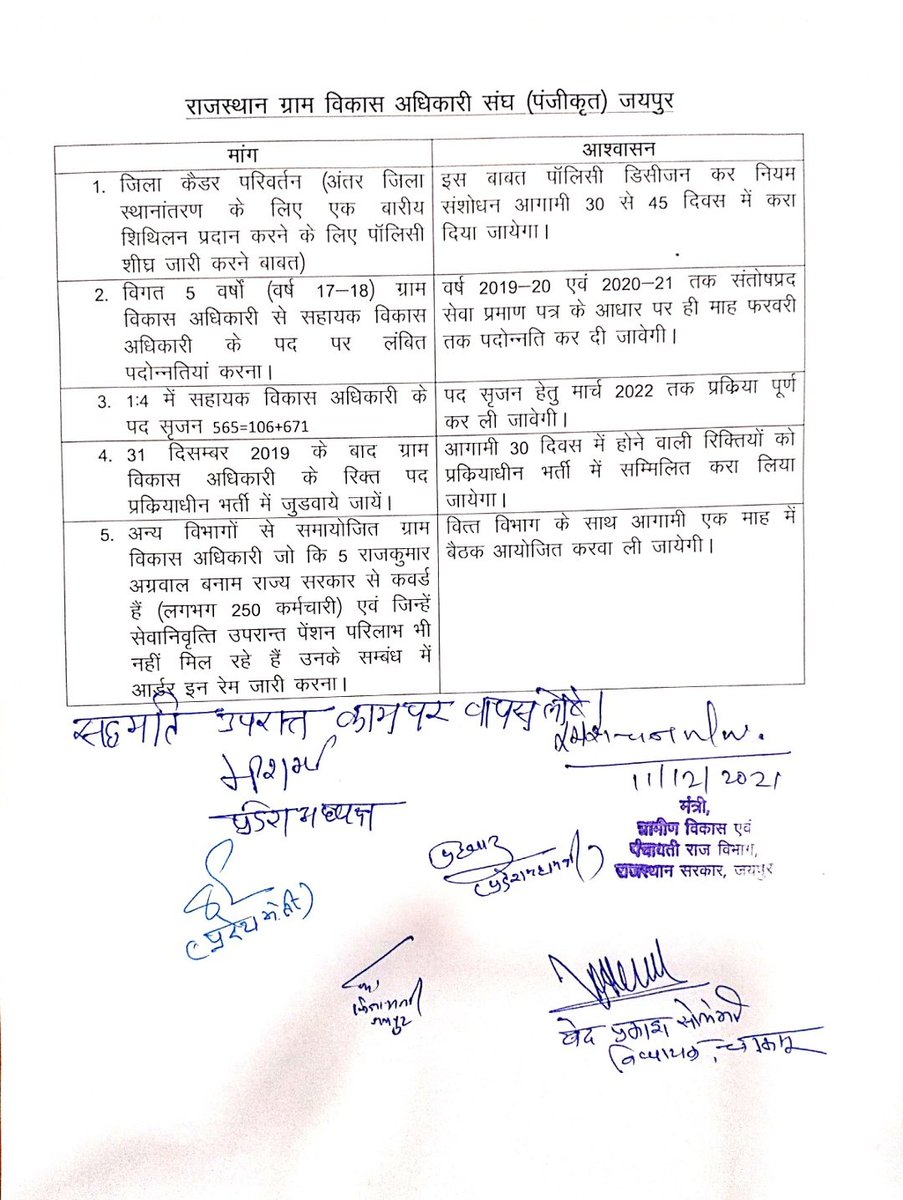 राजस्थान ग्राम विकास अधिकारी संघ (पंजीकृत) जयपुर
मांग
आश्वासन
1. जिला कैडर परिवर्तन (अंतर जिला
स्थानांतरण के लिए एक बारीय
शिथिलन प्रदान करने के लिए पॉलिसी
शीघ्र जारी करने बाबत)
इस बाबत पॉलिसी डिसीजन कर नियम
संशोधन आगामी 30 से 45 दिवस में करा
दिया जायेगा।
2. विगत 5 वर्षो (वर्ष 17–18) ग्राम
विकास अधिकारी से सहायक विकास
अधिकारी के पद पर लंबित
पदोन्नतियां करना।
वर्ष 2019–20 एवं 2020–21 तक संतोषप्रद
सेवा प्रमाण पत्र के आधार पर ही माह फरवरी
तक पदोन्नति कर दी जावेगी।
3. 1:4 में सहायक विकास अधिकारी के
पद सृजन 565=106+671
पद सृजन हेतु मार्च 2022 तक प्रकिया पूर्ण
कर ली जावेगी।
4. 31 दिसम्बर 2019 के बाद ग्राम
विकास अधिकारी के रिक्त पद
प्रकियाधीन भर्ती में जुडवाये जायें।
आगामी 30 दिवस में होने वाली रिक्तियों को
प्रकियाधीन भर्ती में सम्मिलित करा लिया
जायेगा।
5. अन्य विभागों से समायोजित ग्राम
विकास अधिकारी जो कि 5 राजकुमार
अग्रवाल बनाम राज्य सरकार से कवर्ड
हैं (लगभग 250 कर्मचारी) एवं जिन्हें
सेवानिवृत्ति उपरान्त पेंशन परिलाभ भी
नहीं मिल रहे हैं उनके सम्बंध में
आर्डर इन रेम जारी करना।
वित्त विभाग के साथ आगामी एक माह में
बैठक आयोजित करवा ली जायेगी।
सहमति उपरान्त काम पर वापस लौटे।
11/12/2021
मंत्री,
ग्रामीण विकास एवं
पंचायती राज विभाग,
राजस्थान सरकार, जयपुर
प्रदेशाध्यक्ष
(प्रदेश मंत्री)
(प्रदेश महामंत्री)
जयपुर
वेद प्रकाश सोलंकी
विधायक, चाकसू